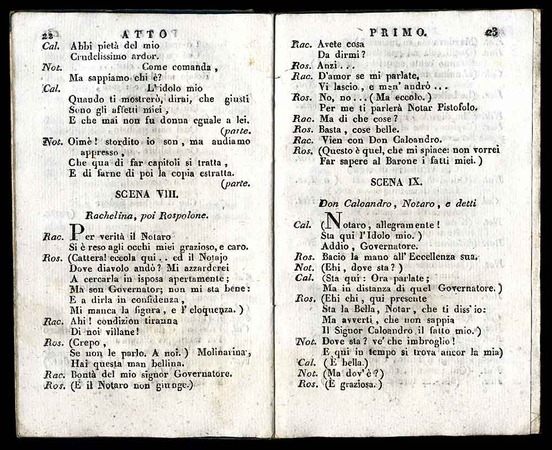 22 ATTO
Cal. Abbi pietà del mio
Crudelissimo ardor.
Not. Come comanda,
Ma sappiamo chi è?
Cal. L'idolo mio
Quando ti mostrerò, dirai, che giusti
Sono gli affetti miei,
E che mai non fu donna eguale a lei.
(parte.
Not. Oimè! stordito io son, ma audiamo
appresso,
Che qua di far capitoli si tratta,
E di farne di poi la copia estratta.
(parte.
SCENA VIII.
Rachelina, poi Rospolone.
Rac. Per verità il Notaro
Si è reso agli occhi miei grazioso, e caro.
Ros. (Cattera! eccola qui.. ed il Notajo
Dove diavolo andò? Mi azzarderei
A cercarla in isposa apertamente;
Ma son Governator; non mi sta bene:
E a dirla in confidenza,
Mi manca la figura, e l'eloquenza.)
Rac. Ahi! condizion tiranna
Di noi villane!
Ros. (Crepo,
Se non le parlo. A noi.) Molinarina,
Hai questa man bellina.
Rac. Bontà del mio signor Governatore.
Ros. (E il Notaro non giunge.)
PRIMO. 23
Rac. Avete cosa
Da dirmi?
Ros. Anzi...
Rac. D'amor se mi parlate,
Vi lascio, e men' andrò...
Ros. No, no... (Ma eccolo.)
Per me ti parlerà Notar Pistofolo.
Rac. Ma di che cose?
Ros. Basta, cose belle.
Rac. Vien con Don Caloandro.
Ros. (Questo è quel, che mi spiace: non vorrei
Far sapere al Barone i fatti miei.)
SCENA IX.
Don Caloandro, Notaro, e detti
Cal. (Notaro, allegramente!
Sta qui l'Idolo mio.)
Addio, Governatore.
Ros. Bacio la mano all' Eccellenza sua.
Not. (Ehi, dove sta?)
Cal. (Sta qui: Ora parlate;
Ma in distanza di quel Governatore.)
Ros. (Ehi chi, qui presente
Sta la Bella, Notar, che ti diss'io:
Ma avverti, che non sappia
Il Signor Caloandro il fatto mio.)
Not. Dove sta? ve' che imbroglio!
E qui in tempo si trova ancor la mia)
Cal. (È bella.)
Not. (Ma dov'è?)
Ros. (È graziosa.)